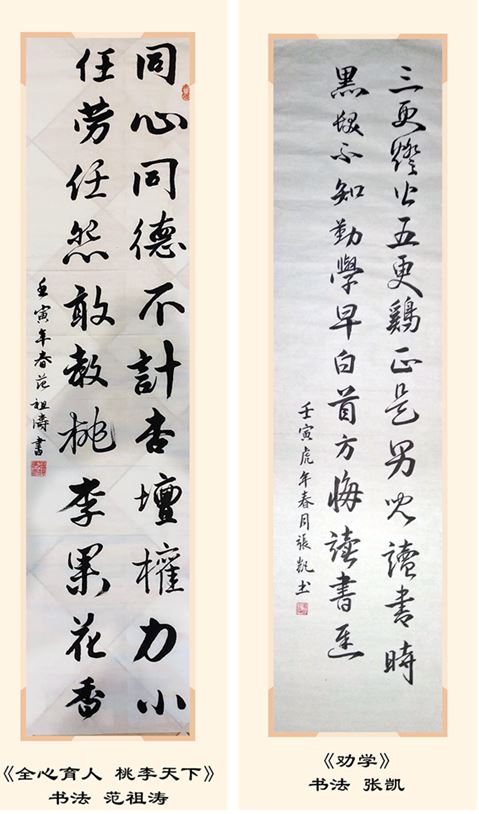 同心同德不計杏壇權力小
任劳任怨敢教桃李果花香
壬寅年春范祖濤書
《全心育人 桃李天下》
书法 范祖涛
三更燈火五更鷄正是男兒讀書時
黑髮不知勤學早白首方悔讀書遲
壬寅虎年春月張凱书
《劝学》
书法 张凯